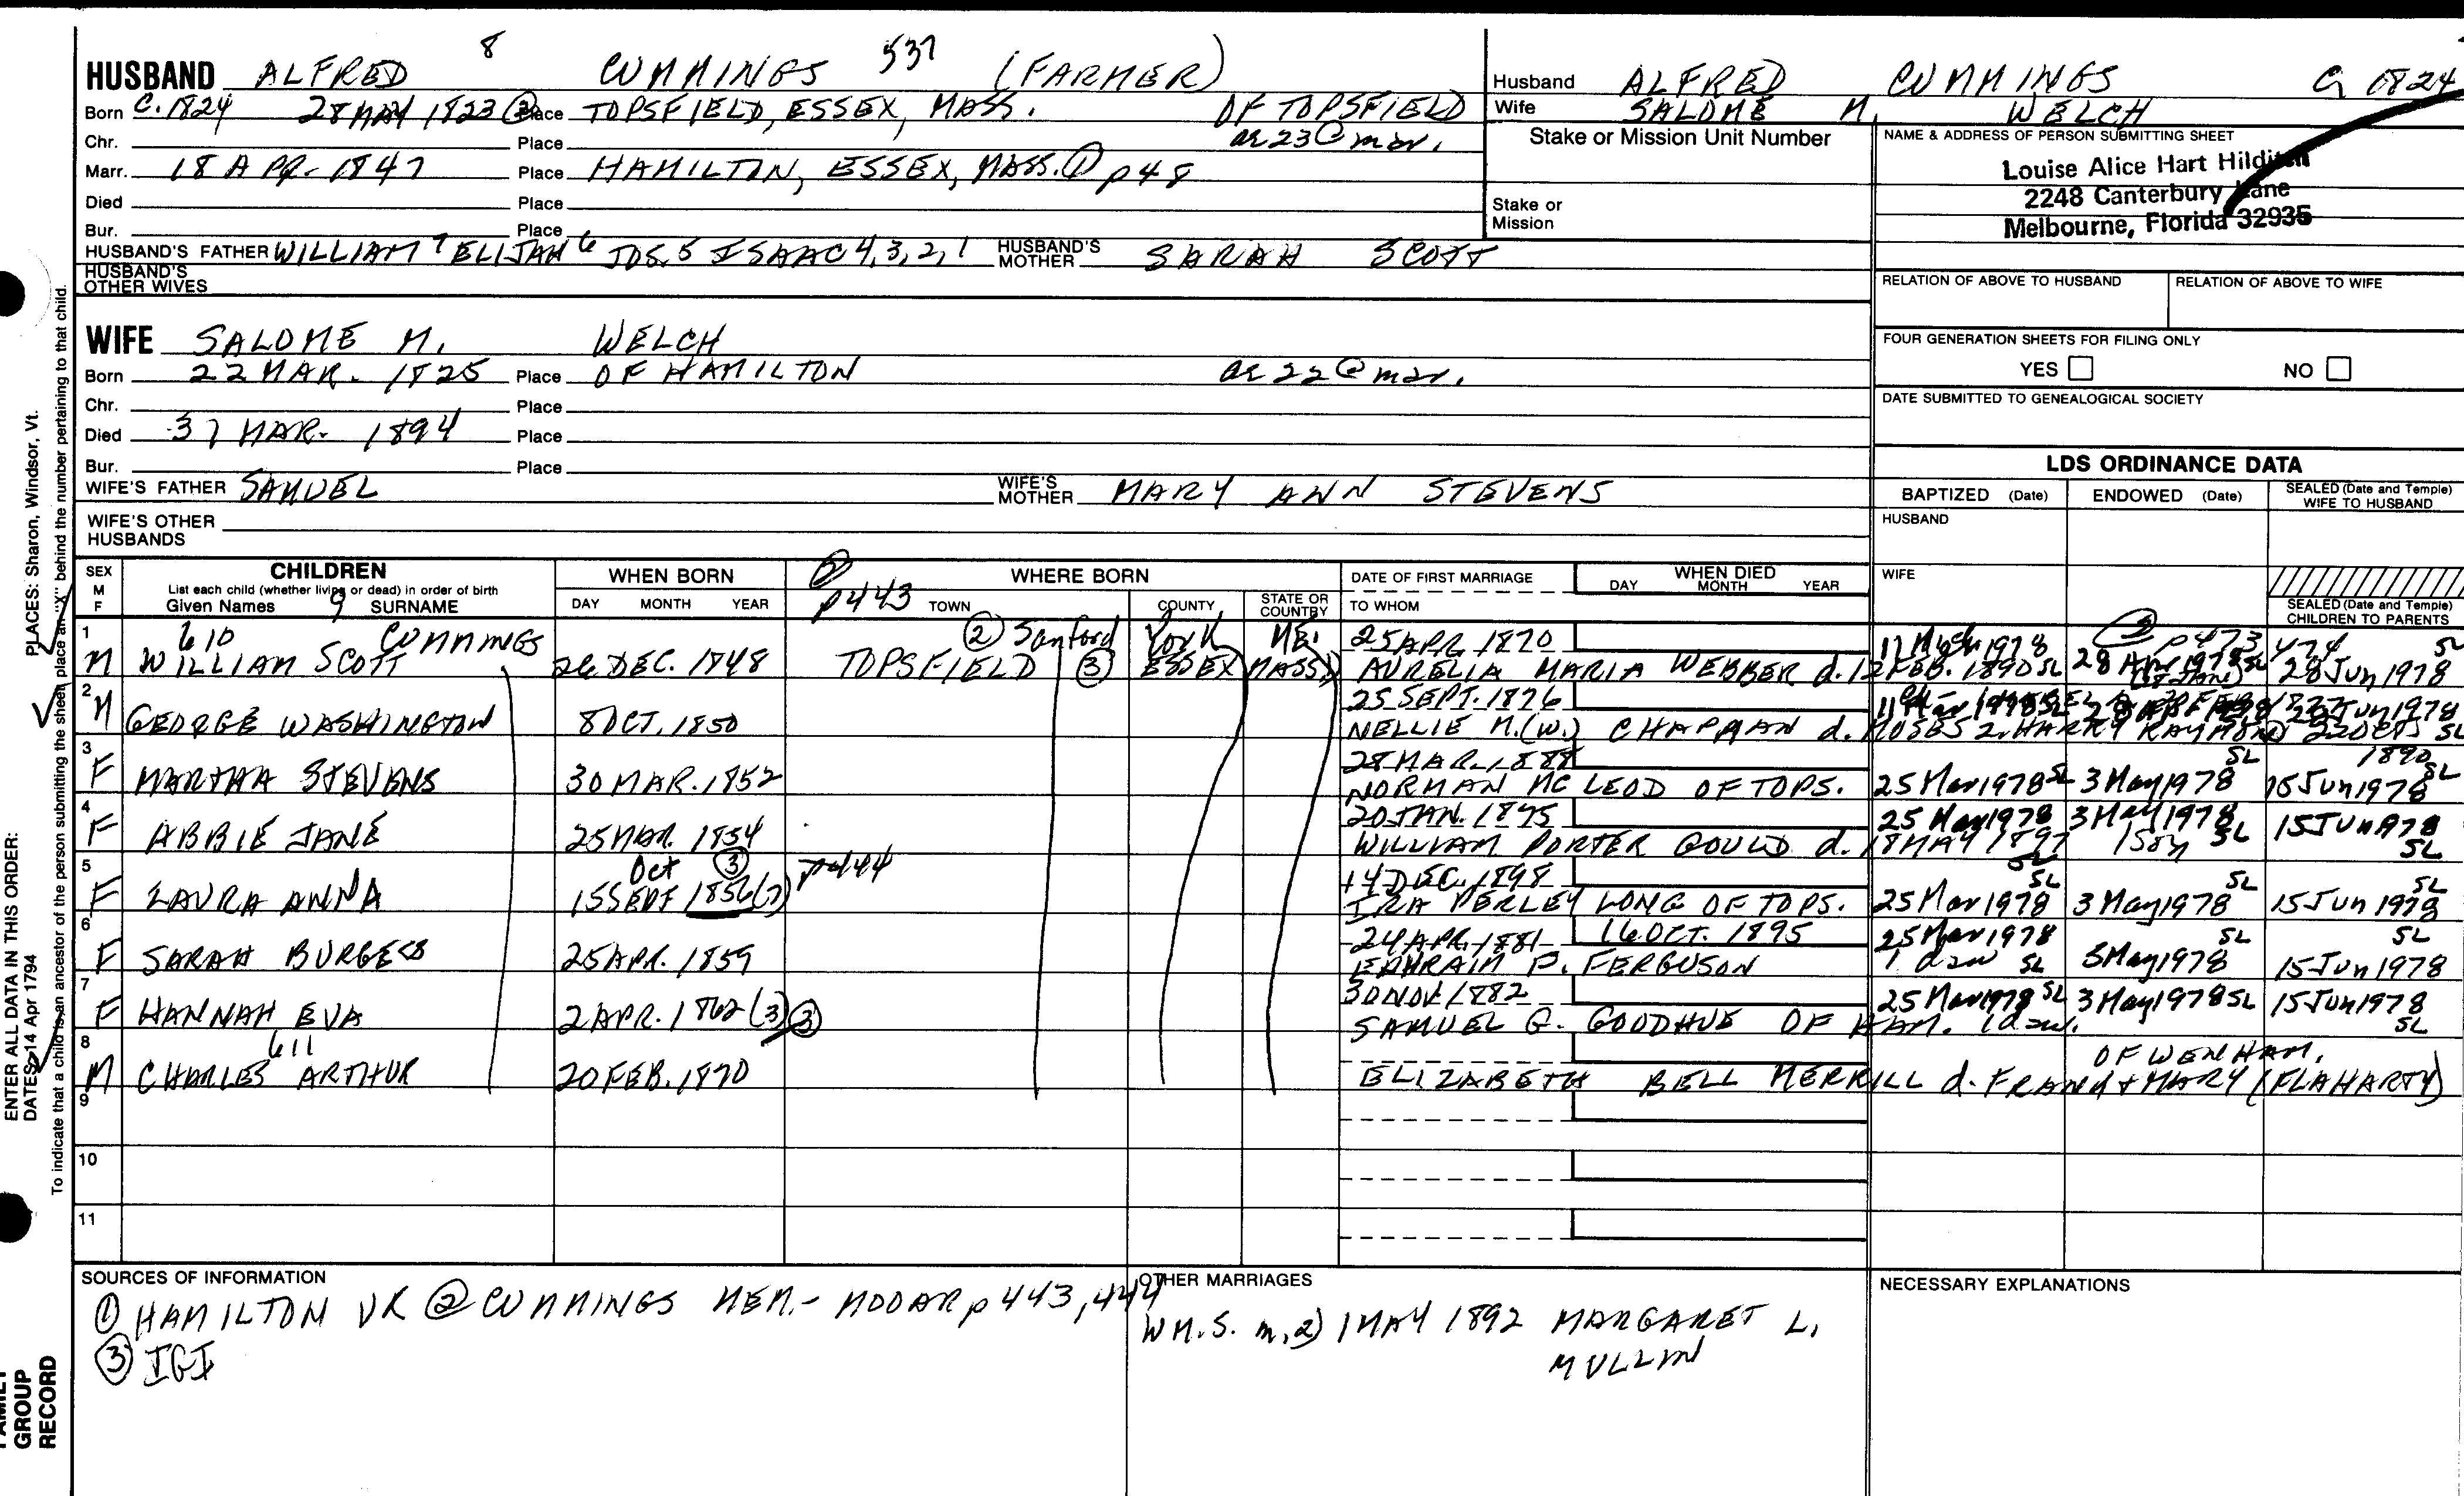 HUSBAND ALFRED 8 CUMMINGS 537 (FARMER)
Born C. 1824 28 MAY 1823 Place TOPSFIELD, ESSEX, MASS. OF TOPSFIELD
Chr. Place ae 23 @ mar.
Marr. 18 APR. 1847 Place HAMILTON, ESSEX, MASS. ① p48
Died Place
Bur. Place
HUSBAND'S FATHER WILLIAM 7 ELIJAH 6 JOS. 5 ISAAC 4, 3, 2, 1 HUSBAND'S MOTHER SARAH SCOTT
HUSBAND'S OTHER WIVES
WIFE SALOME M. WELCH
Born 22 MAR. 1825 Place OF HAMILTON ae 22 @ mar.
Chr. Place
Died 31 MAR. 1894 Place
Bur. Place
WIFE'S FATHER SAMUEL WIFE'S MOTHER MARY ANN STEVENS
WIFE'S OTHER HUSBANDS
Husband ALFRED CUMMINGS C 1824
Wife SALOME M. WELCH
Stake or Mission Unit Number
Stake or Mission
NAME & ADDRESS OF PERSON SUBMITTING SHEET
Louise Alice Hart Hilditch
2248 Canterbury Lane
Melbourne, Florida 32935
RELATION OF ABOVE TO HUSBAND RELATION OF ABOVE TO WIFE
FOUR GENERATION SHEETS FOR FILING ONLY
YES NO
DATE SUBMITTED TO GENEALOGICAL SOCIETY
LDS ORDINANCE DATA
BAPTIZED (Date) ENDOWED (Date) SEALED (Date and Temple) WIFE TO HUSBAND
HUSBAND
WIFE
SEALED (Date and Temple) CHILDREN TO PARENTS
SEX M F
CHILDREN
List each child (whether living or dead) in order of birth
Given Names 9 SURNAME
WHEN BORN
DAY MONTH YEAR
p443
WHERE BORN
TOWN COUNTY STATE OR COUNTRY
DATE OF FIRST MARRIAGE
TO WHOM
WHEN DIED
DAY MONTH YEAR
1 610 CUMMINGS ② Sanford York ME. 25 APR. 1870 p473 474 SL
M WILLIAM SCOTT 26 DEC. 1848 TOPSFIELD ③ ESSEX MASS. AURELIA MARIA WEBBER d. 12 FEB. 1890 SL 28 Apr 1978 SL 28 Jun 1978
2 25 SEPT. 1876
M GEORGE WASHINGTON 8 OCT. 1850 NELLIE M. (W.) CHAPMAN d. MOSES 2. HARRY RAYMOND 22 OCT SL
3 28 MAR. 1888 SL 1890 SL
F MARTHA STEVENS 30 MAR. 1852 NORMAN MC LEOD OF TOPS. 25 Mar 1978 SL 3 May 1978 15 Jun 1978
4 20 JAN. 1875 25 Mar 1978 3 May 1978 15 Jun 1978
F ABBIE JANE 25 MAR. 1854 WILLIAM PORTER GOULD d. 18 MAY 1897 1 son SL SL
5 Oct ③ p444 14 DEC. 1898 SL SL SL
F LAURA ANNA 15 SEPT 1856 (7) IRA PERLEY LONG OF TOPS. 25 Mar 1978 3 May 1978 15 Jun 1978
6 24 APR. 1881 16 OCT. 1895 25 Mar 1978 SL SL
F SARAH BURGESS 25 APR. 1859 EPHRAIM P. FERGUSON 1 dau SL 3 May 1978 15 Jun 1978
7 30 NOV. 1882 25 Mar 1978 SL 3 May 1978 SL 15 Jun 1978
F HANNAH EVA 2 APR. 1862 (3) ③ SAMUEL G. GOODHUE OF HAM. 1 dau. SL
8 611 OF WENHAM.
M CHARLES ARTHUR 20 FEB. 1870 ELIZABETH BELL MERRILL d. FRANK & MARY (FLAHARTY)
9
10
11
SOURCES OF INFORMATION
① HAMILTON VR ② CUMMINGS MEM. - MOOAR p 443, 444
③ IGI
OTHER MARRIAGES
WM. S. m. 2) 1 MAY 1892 MARGARET L. MULLIN
NECESSARY EXPLANATIONS
PLACES: Sharon, Windsor, Vt.
ENTER ALL DATA IN THIS ORDER:
DATES: 14 Apr 1794
To indicate that a child is an ancestor of the person submitting the sheet, place an "X" behind the number pertaining to that child.
FAMILY GROUP RECORD